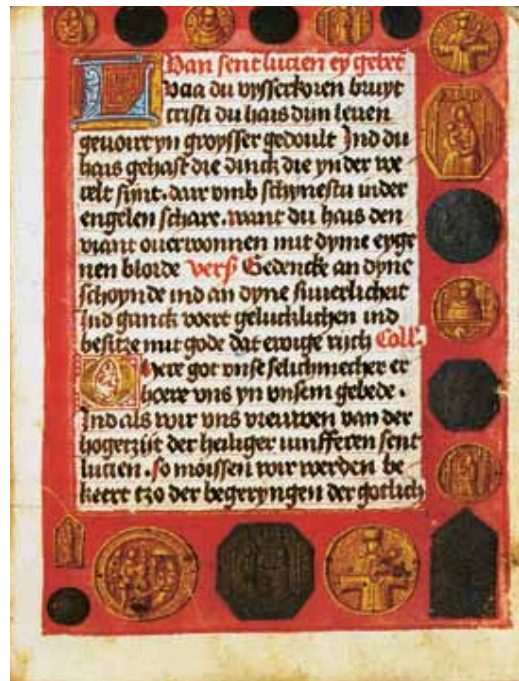 Van sent lucien ey gebet
Vaa du vysserkoren bruyt
cristi du hais dyn leuen
geuoirt yn groysser gedoult Ind du
hais gehast die dinck die yn der we
relt synt. dair vmb schynestu in der
engelen schare. want du hais den
viant ouerwonnen mit dyme eyge
nen bloede vers Gedencke an dyne
schoynde ind an dyne suuerlicheit
Ind ganck voert geluchlichen ind
besitze mit gode dat ewige rijch Coll'
O here got vnse selichmecher er
hoere vns yn vnsem gebede.
Ind als wir vns vreuwen van der
hogetzijt der heiliger iunfferen sent
lucien. so moissen wir werden be
keert tzo der begeryngen der gotlich